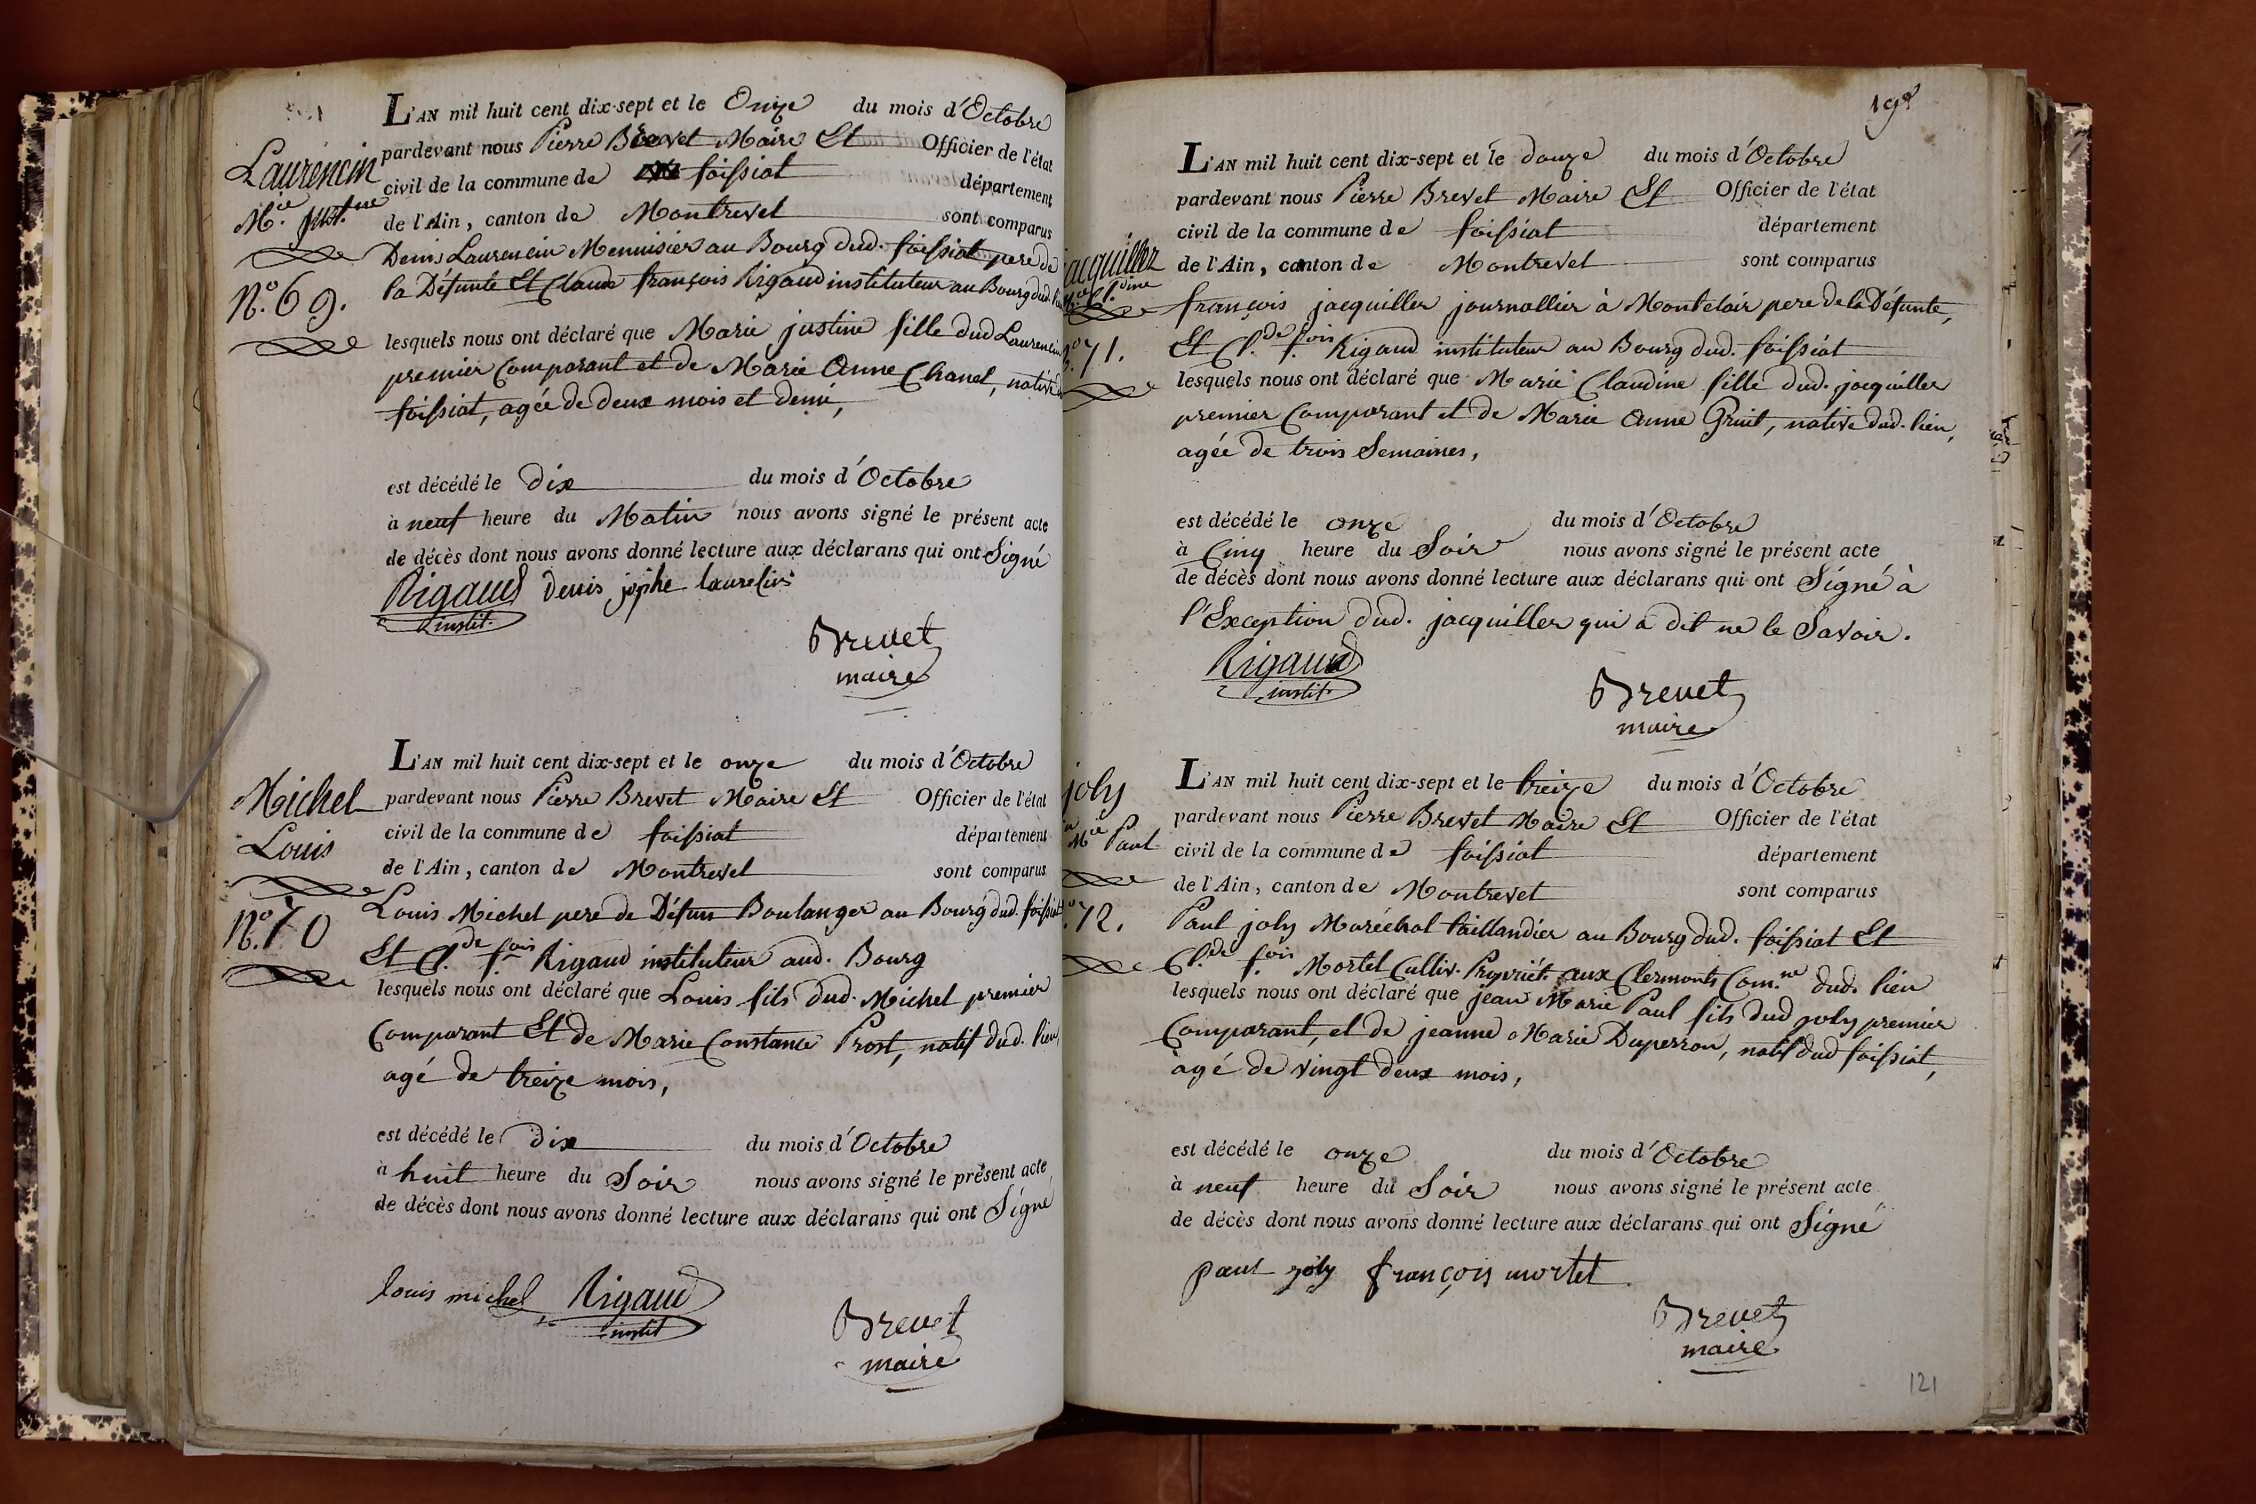 L'AN mil huit cent dix-sept et le Onze du mois d'Octobre
pardevant nous Pierre Brevet Maire Et Officier de l'état
civil de la commune de foissiat département
de l'Ain, canton de Montrevel sont comparus
Denis Laurencin Menuisier au Bourg dud. foissiat pere de
la Défunte Et Claude françois Rigaud instituteur au Bourg dud.
lesquels nous ont déclaré que Marie justine fille dud Laurencin
premier Comparant et de Marie Anne Chanel, native
foissiat, agée de deux mois et demi,
est décédé le dix du mois d'Octobre
à neuf heure du Matin nous avons signé le présent acte
de décès dont nous avons donné lecture aux déclarans qui ont Signé
Laurencin
M.ie just.ne
N.o 69.
Rigaud Denis
instit.
Brevet
maire
L'AN mil huit cent dix-sept et le onze du mois d'Octobre
pardevant nous Pierre Brevet Maire Et Officier de l'état
civil de la commune de foissiat département
de l'Ain, canton de Montrevel sont comparus
Louis Michel pere de Défun Boulanger au Bourg dud. foissiat
Et Cl.de f.ois Rigaud instituteur aud. Bourg
lesquels nous ont déclaré que Louis fils dud. Michel premier
Comparant Et de Marie Constance Prost, natif dud. lieu,
agé de treize mois,
est décédé le dix du mois d'Octobre
à huit heure du Soir nous avons signé le présent acte
de décès dont nous avons donné lecture aux déclarans qui ont Signé
Michel
Louis
N.o 70
louis michel Rigaud
instit
Brevet
maire
L'AN mil huit cent dix-sept et le douze du mois d'Octobre
pardevant nous Pierre Brevet Maire Et Officier de l'état
civil de la commune de foissiat département
de l'Ain, canton de Montrevel sont comparus
françois jacquiller journallier à Montclair pere de la Défunte,
Et Cl.de f.ois Rigaud instituteur au Bourg dud. foissiat
lesquels nous ont déclaré que Marie Claudine fille dud. jacquiller
premier Comparant et de Marie Anne Gruit, native dud. lieu,
agée de trois Semaines,
est décédé le onze du mois d'Octobre
à Cinq heure du Soir nous avons signé le présent acte
de décès dont nous avons donné lecture aux déclarans qui ont Signé à
l'Exception dud. jacquiller qui a dit ne le Savoir.
jacquiller
71.
Rigaud
instit.
Brevet
maire
L'AN mil huit cent dix-sept et le treize du mois d'Octobre
pardevant nous Pierre Brevet Maire Et Officier de l'état
civil de la commune de foissiat département
de l'Ain, canton de Montrevel sont comparus
Paul joly Maréchal taillandier au Bourg dud. foissiat Et
Cl.de f.ois Mortel Cultiv. Propriét. aux Clermonts Com.ne dud. lieu
lesquels nous ont déclaré que jean Marie Paul fils dud joly premier
Comparant, et de jeanne Marie Duperron, natif dud foissiat,
agé de vingt deux mois,
est décédé le onze du mois d'Octobre
à neuf heure du Soir nous avons signé le présent acte
de décès dont nous avons donné lecture aux déclarans qui ont Signé
joly
M.ie Paul
72.
paul joly françois mortel
Brevet
maire
121